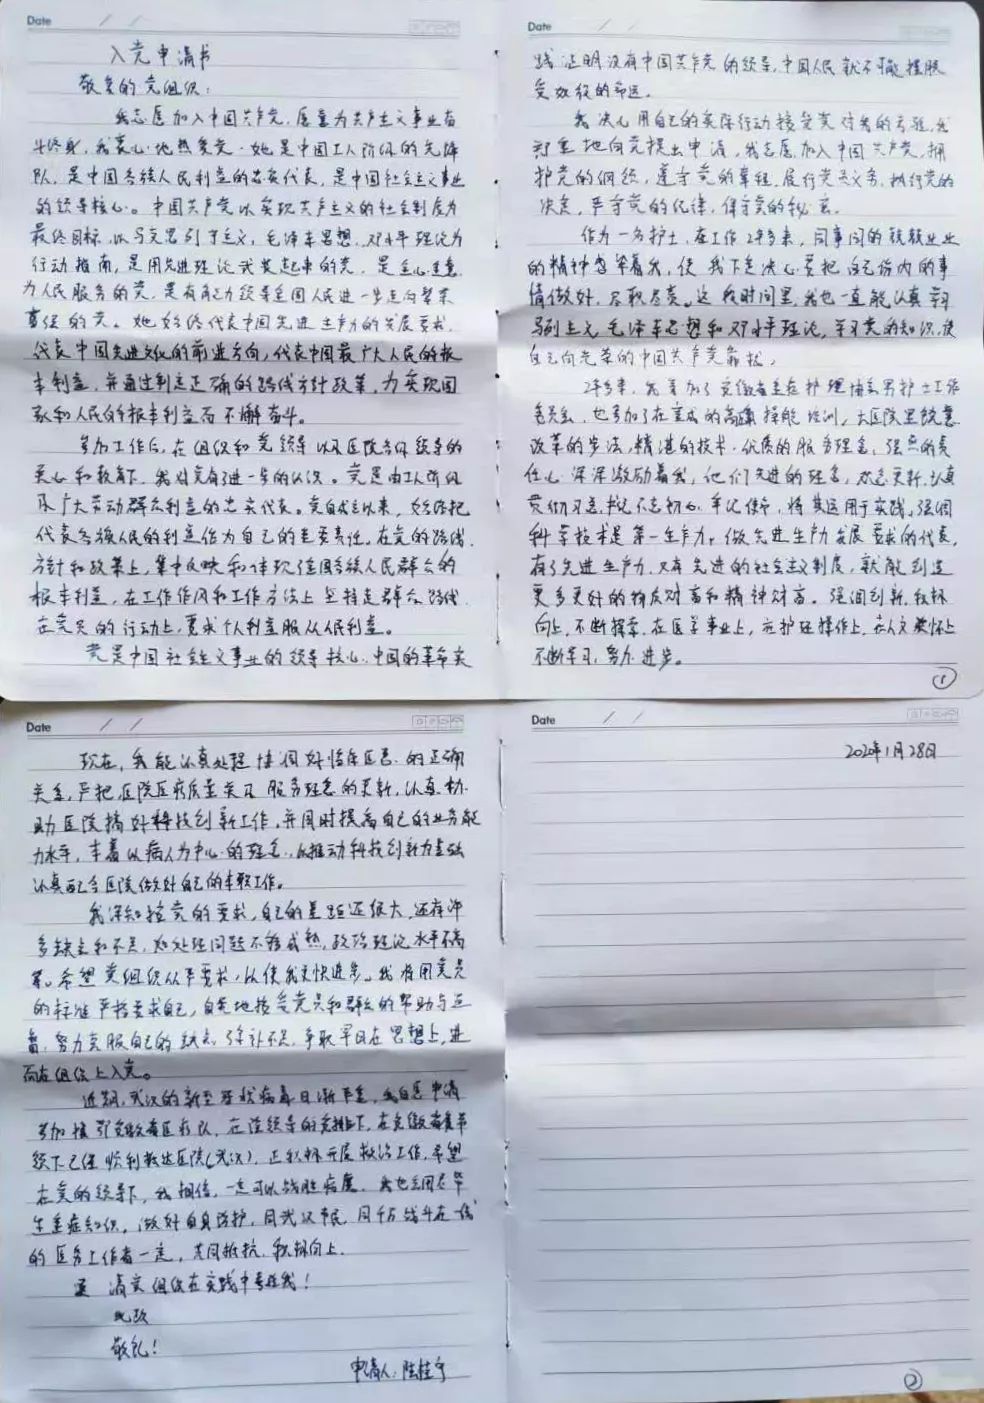 Date / /
入党申请书
敬爱的党组织：
我志愿加入中国共产党，愿意为共产主义事业奋
斗终身，我衷心地热爱党，她是中国工人阶级的先锋
队，是中国各族人民利益的忠实代表，是中国社会主义事业
的领导核心。中国共产党以实现共产主义的社会制度为
最终目标，以马克思列宁主义，毛泽东思想，邓小平理论为
行动指南，是用先进理论武装起来的党，是全心全意
为人民服务的党，是有能力领导全国人民进一步走向繁荣
富强的党。她始终代表中国先进生产力的发展要求，
代表中国先进文化的前进方向，代表中国最广大人民的根
本利益，并通过制定正确的路线方针政策，为实现国
家和人民的根本利益而不懈奋斗。
参加工作后，在组织和党领导以及医院各级领导的
关心和教育下，我对党有进一步的认识。党是由工人阶级
及广大劳动群众利益的忠实代表。党自成立以来，始终把
代表各族人民的利益作为自己的重要责任。在党的路线
方针和政策上，集中反映和体现全国各族人民群众的
根本利益，在工作作风和工作方法上坚持走群众路线，
在党员的行动上，要求个人利益服从人民利益。
党是中国社会主义事业的领导核心，中国的革命实
Date / /
践证明没有中国共产党的领导，中国人民就不可能摆脱
受奴役的命运。
我决心用自己的实际行动接受党对我的考验，我
郑重地向党提出申请，我志愿加入中国共产党，拥
护党的纲领，遵守党的章程，履行党员义务，执行党的
决定，严守党的纪律，保守党的秘密。
作为一名护士，在工作2年多来，同事间的兢兢业业
的精神感染着我，使我下定决心要把自己份内的事
情做好，尽职尽责。这段时间里，我也一直能认真学习
马列主义，毛泽东思想和邓小平理论，学习党的知识，使
自己向光荣的中国共产党靠拢。
2年多来，我参加了安徽省重症护理协会男护士工作
委员会，也参加了在宣城的高峰技能培训，大医院里锐意
改革的步法，精湛的技术，优质的服务理念，强烈的责
任心深深激励着我，他们先进的理念，观念更新，认真
贯彻习总书记不忘初心，牢记使命，将其运用于实践，强调
科学技术是第一生产力，做先进生产力发展要求的代表，
有了先进生产力，又有先进的社会主义制度，就能创造
更多更好的物质财富和精神财富。强调创新，积极
向上，不断探索，在医学事业上，在护理操作上，在人文关怀上
不断学习，努力进步。
1
Date / /
现在，我能认真处理协调好临床医患的正确
关系，严把医院医疗质量关及服务理念的更新，认真协
助医院搞好科技创新工作，并同时提高自己的业务能
力水平，本着以病人为中心的理念，以推动科技创新为基础
认真配合医院做好自己的本职工作。
我深知按党的要求，自己的差距还很大，还有许
多缺点和不足，如处理问题不够成熟，政治理论水平不高
等。希望党组织从严要求，以使我更快进步。我将用党员
的标准严格要求自己，自觉地接受党员和群众的帮助与监
督，努力克服自己的缺点，弥补不足，争取早日在思想上，进
而在组织上入党。
近期，武汉的新型冠状病毒日渐严重，我自愿申请
参加援鄂安徽省医疗队，在该领导的安排下，在安徽省带
领下已经顺利抵达医院(武汉)，正积极开展救治工作，希望
在党的领导下，我相信，一定可以战胜病魔，我也会用尽毕
生重症知识，做好自身防护，同武汉市民，同千万战斗在一线
的医务工作者一定，共同抵抗，积极向上。
请党组织在实践中考验我！
此致
敬礼！
申请人：陆桂宁
Date / /
2020年1月28日
2